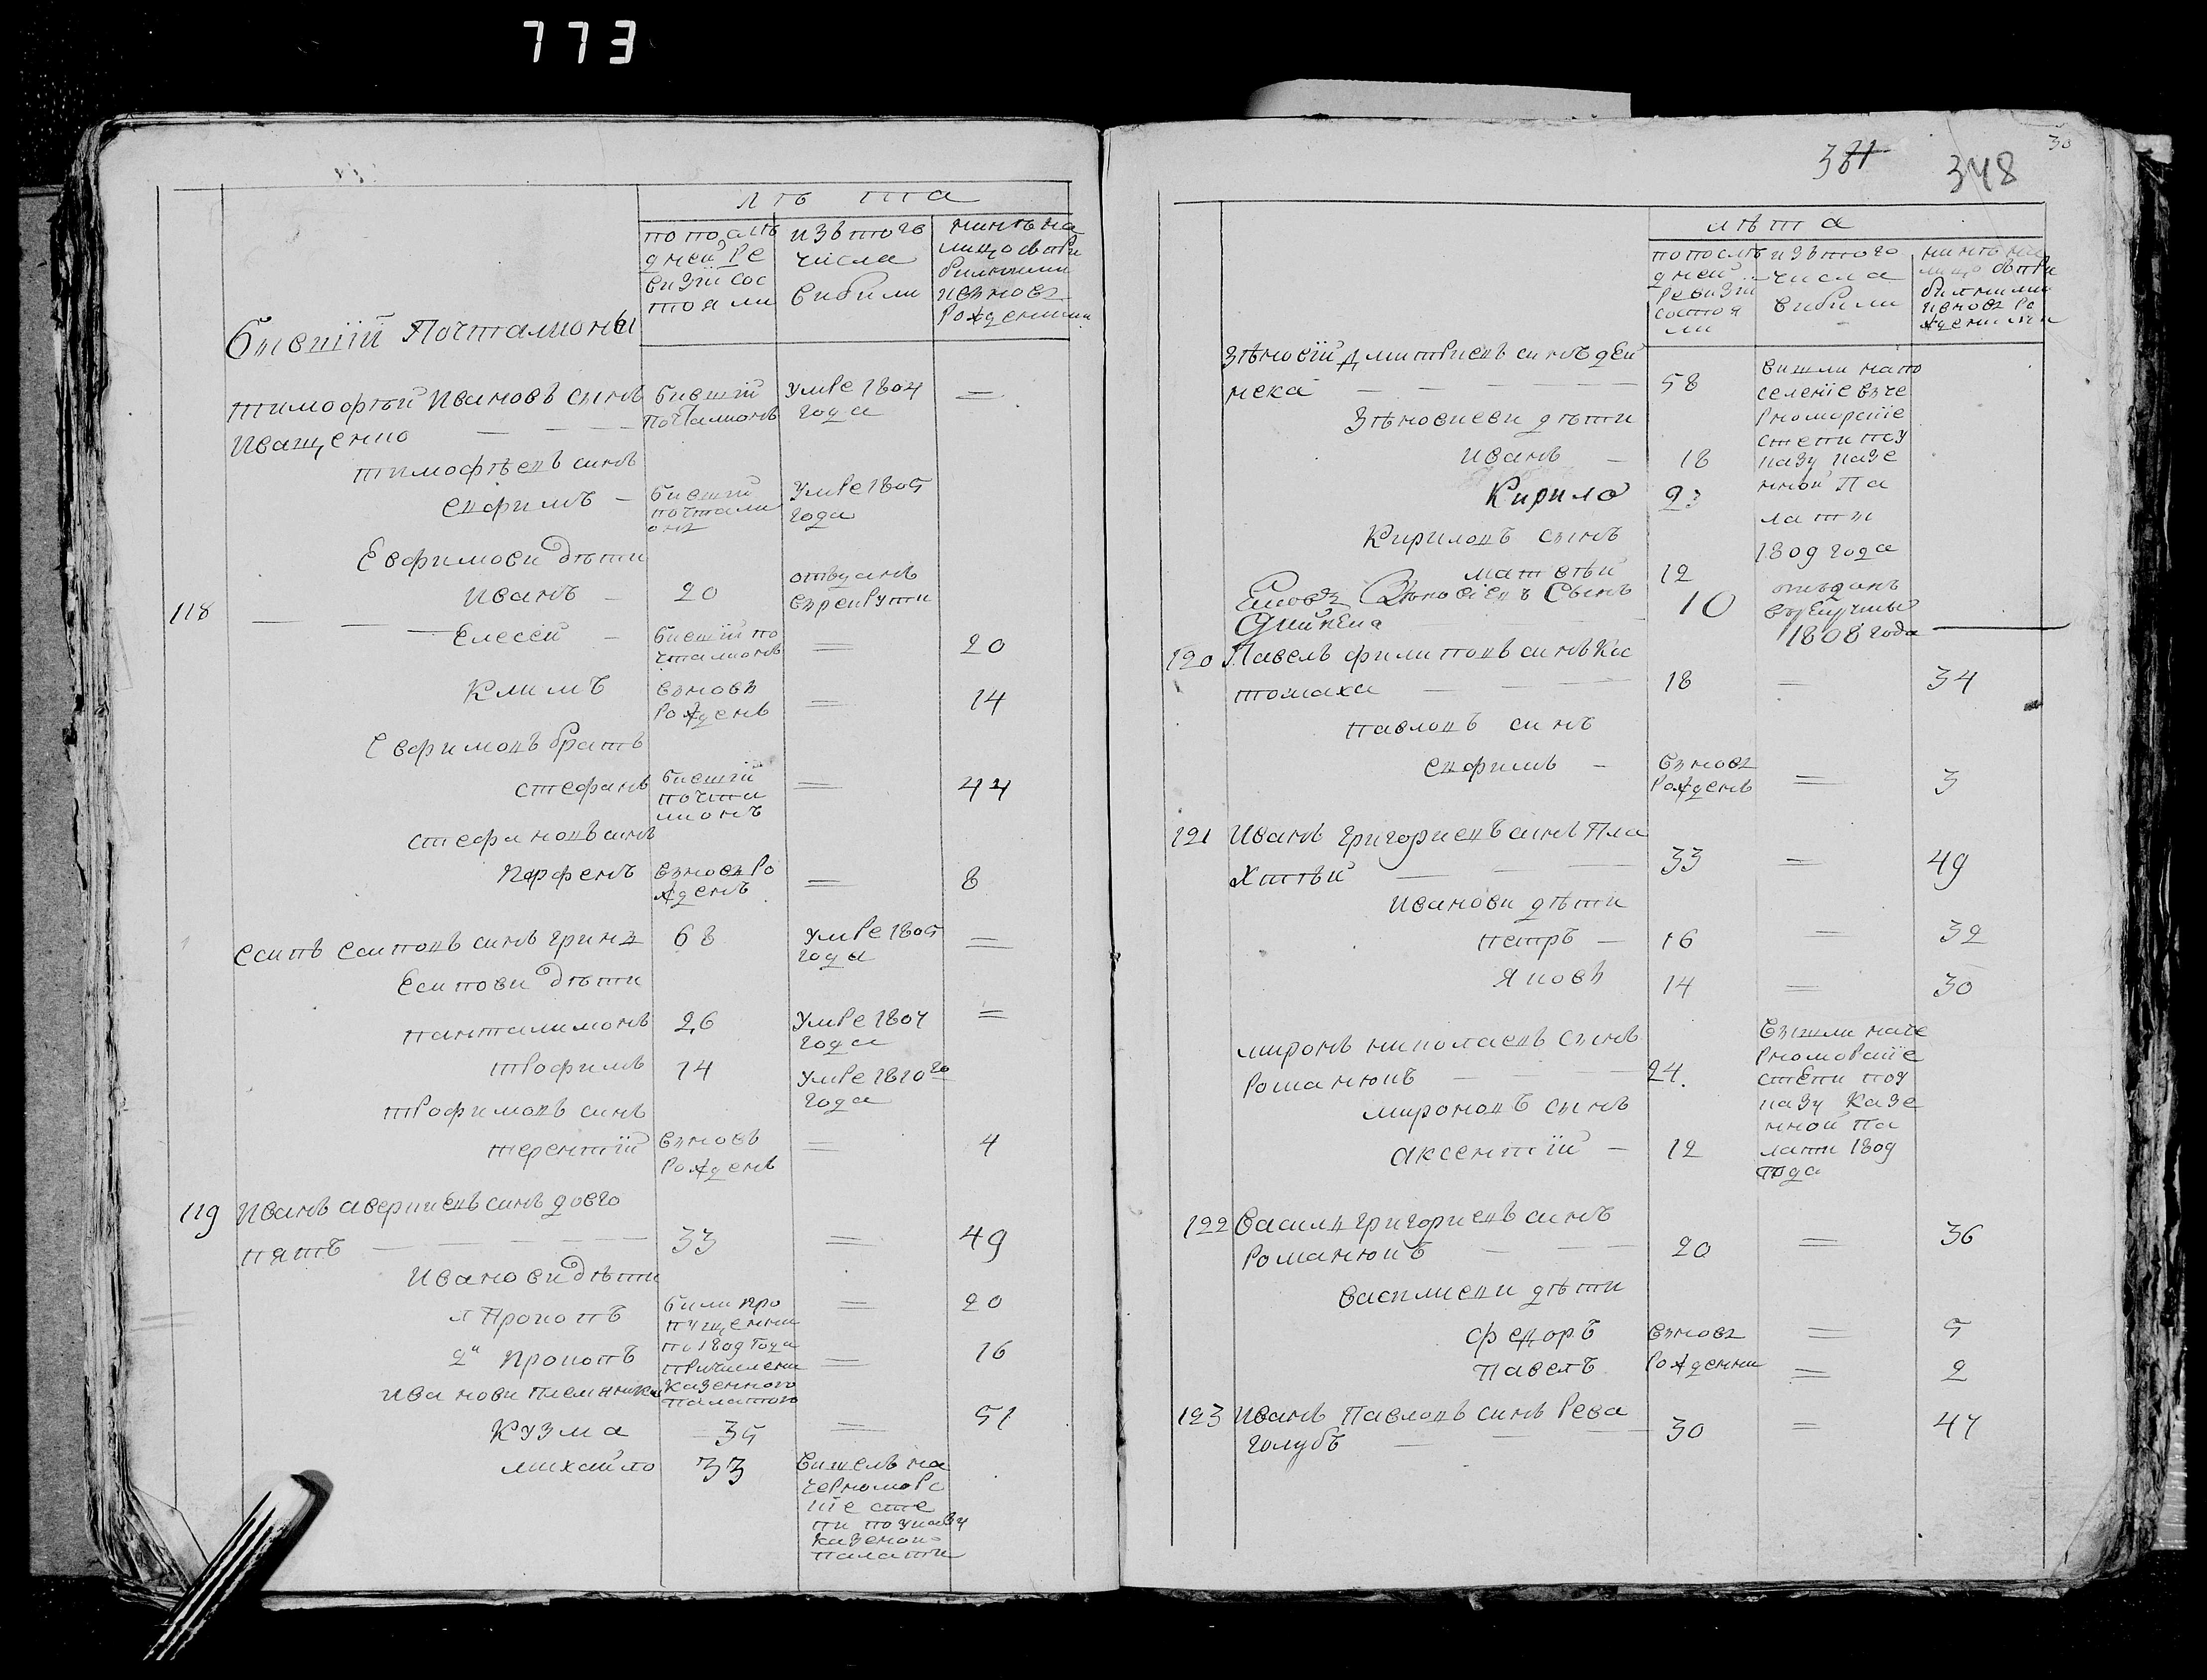 773
лѣ та
по послѣ
дней ре
визіи сос
тояли
изъ того
числа
вибили
нинѣ на
лицо
Бившій Почталионы
Тимофѣй Ивановъ синъ
Иващенко
бившій
почталионъ
умре 1804
года
=
Тимофѣевъ синъ
Ефимъ -
бившій
почтали
онъ
умре 1805
года
Евфимови дѣти
118
Иванъ - 20
отвданъ
Елесей -
бившій по
чталионъ
=
20
Климъ
вновь
рожденъ
=
14
Евфимовъ братъ
Стефанъ
бившій
почта
лионъ
=
44
Стефановъ синъ
Парфенъ
вновь ро
жденъ
=
8
Есипъ Есиповъ синъ
68
умре 1805
года
=
Есипови дѣти
Панталимонъ 26
умре 1807
года
=
Трофимъ 14
умре 1810го
года
Трофимовъ синъ
Терентій
вновь
рожденъ
=
4
119 Иванъ Аверкиевъ синъ Довго
пятъ 33 = 49
Иванови дѣти
1 Прокопъ
били про
пущенни
=
20
2й Прокопъ
по 1809 года
причислени
=
16
Иванови племянники
казенного
палатою
Кузма 35 = 51
Михайло 33
вишелъ на
черноморс
кіе сте
пи по указу
казеной
палати
381 348
30
лѣта
по послѣ
дней
ревизіи
состоя
ли
изъ того
числа
вибили
нинѣ на
лицо
Зѣновій Дмитриевъ синъ Дей
нека 58
вишли на по
селеніе в че
рноморскіе
степи по у
казу казе
нной Па
лати
1809 года
Зѣновиеви дѣти
Иванъ - 18
Кирило 23
Кириловъ синъ
Матвѣй 12
Яковъ Зѣновіевъ Сынъ
Дийнека 10
отъдан
1808 года
120 Павелъ Филиповъ синъ Кос
томаха 18 = 34
Павловъ синъ
Ефимъ -
вновь
рожденъ
=
3
121 Иванъ Григориевъ синъ Пла
хтѣй 33 = 49
Иванови дѣти
Петръ - 16 = 32
Яковъ 14 = 30
Миронъ Николаевъ синъ
Романюкъ 24.
вышли на че
рноморскіе
степи по у
казу казе
нной па
лати 1809
года
Мироновъ синъ
Аксентій - 12
122 Василъ Григориевъ синъ
Романюкъ 20 = 36
Василиеви дѣти
Федоръ вновь = 5
Павелъ рожденни = 2
123 Иванъ Павловъ синъ Рева
голубъ 30 = 47